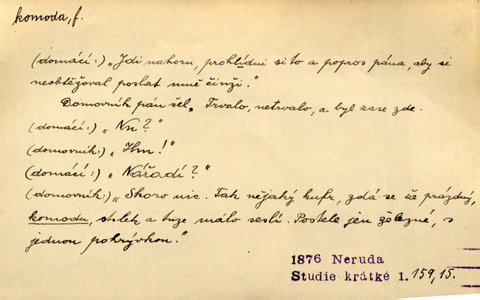 komoda, f.
(domácí:) „Jdi nahoru, prohlédni si to a popros pána, aby si
neobtěžoval poslat mně činži.“
Domovník pán šel. Trvalo, netrvalo, a byl zase zde.
(domácí:) „Nu?“
(domovník:) „Hm!“
(domácí:) „Nářadí?“
(domovník:) „Skoro nic. Tak nějaký kufr, zdá se že prázdný,
komodu, stolek a tuze málo seslí. Postele jen železné, s
jednou pokrývkou.“
1876 Neruda
Studie krátké 1. 159,15.